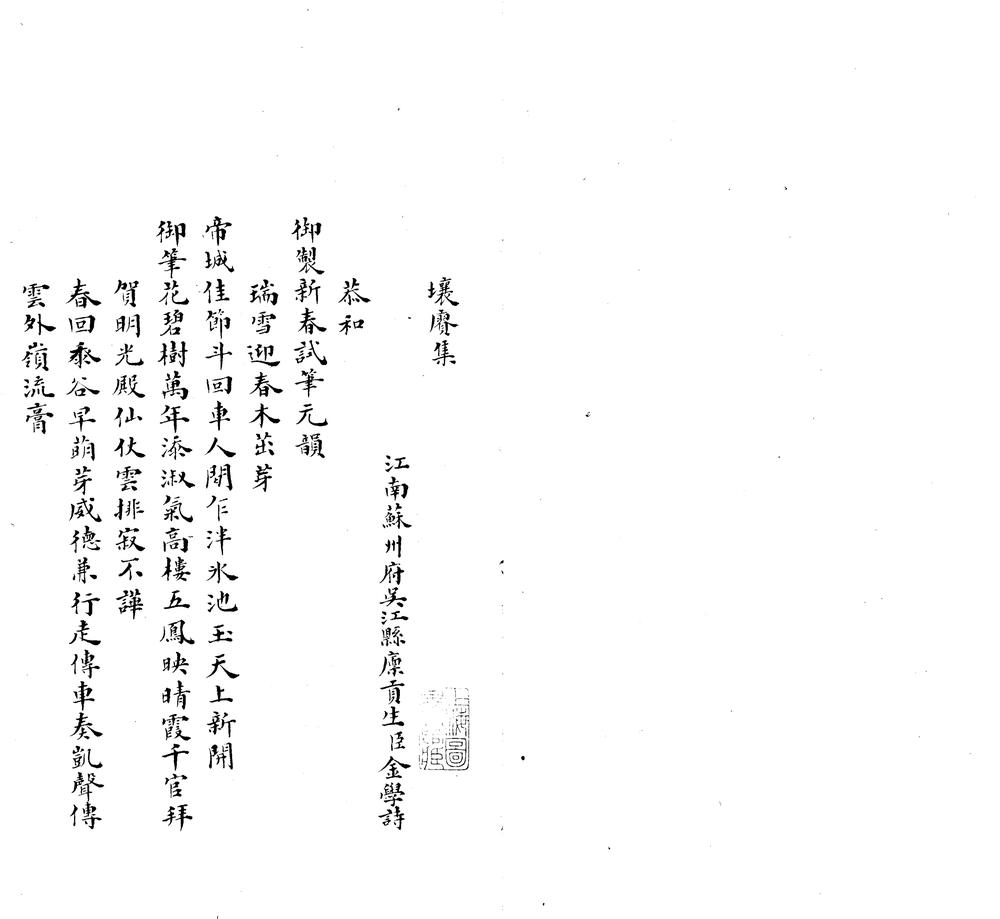 壤賡集
江南蘇州府吳江縣廩貢生臣金學詩
恭和
御製新春試筆元韻
瑞雪迎春木茁芽
帝城佳節斗回車人間乍泮氷池玉天上新開
御筆花碧樹萬年添淑氣高樓五鳳映晴霞千官拜
賀明光殿仙仗雲排寂不譁
春回黍谷早萌芽威德兼行走傳車奏凱聲傳
雲外嶺流膏